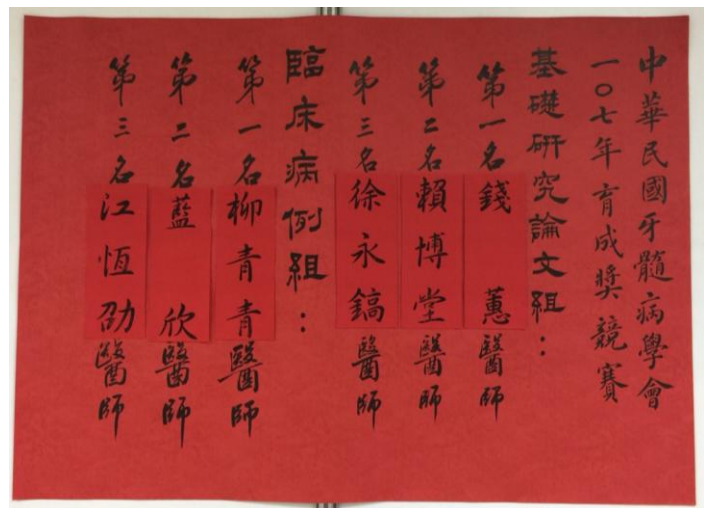 中華民國牙髓病學會
一〇七年育成獎競賽
基礎研究論文組：
第一名錢蕙醫師
第二名賴博堂醫師
第三名徐永鎬醫師
臨床病例組：
第一名柳青青醫師
第二名藍欣醫師
第三名江恆劭醫師